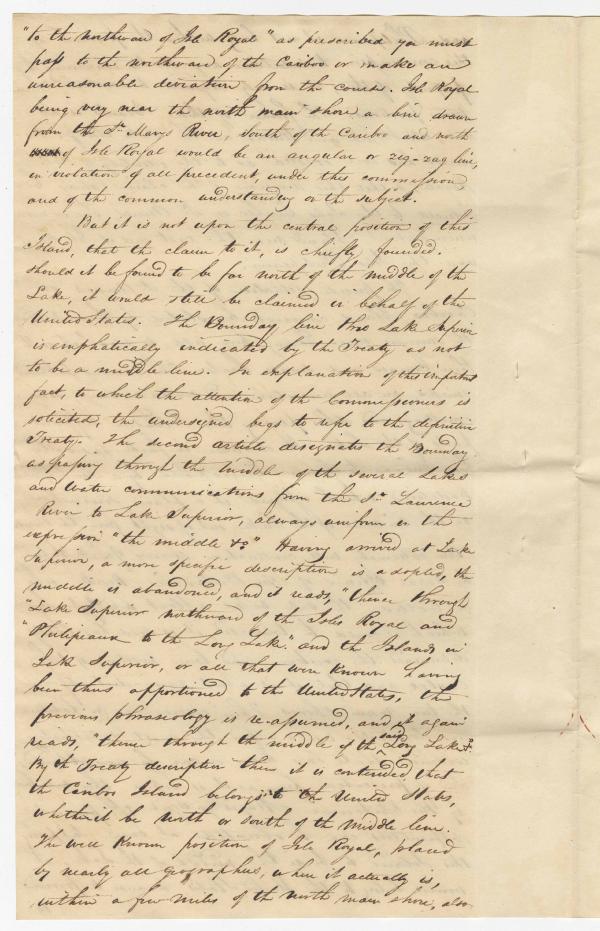 "to the northward of Isle Royal" as prescribed you must
pass to the northward of the Cariboo or make an
unreasonable deviation from the course. Isle Royal
being very near the north main shore a line drawn
from the St. Marys River, south of the Cariboo and north
of Isle Royal would be an angular or zig-zag line,
in violation of all precedent, under this commission,
and of the common understanding on the subject.
But it is not upon the central position of this
Island, that the claim to it, is chiefly founded.
Should it be found to be far north of the middle of the
Lake, it would still be claimed in behalf of the
United States. The Boundary line thro Lake Superior
is emphatically indicated by the Treaty as not
to be a middle line. In explanation of this important
fact, to which the attention of the Commissioners is
solicited, the undersigned begs to refer to the definitive
Treaty. The second article designates the Boundary
as passing through the middle of the several Lakes
and water communications from the St. Lawrence
River to Lake Superior, always uniform in the
expression "the middle &c" Having arrived at Lake
Superior, a more specific description is adopted, the
middle is abandoned, and it reads, "thence through
"Lake Superior northward of the Isles Royal and
"Philipeaux to the Long Lake." and the Islands in
Lake Superior, or all that were known having
been thus apportioned to the United States, the
previous phraseology is re-assumed, and it again
reads, "thence through the middle of the said Long Lake &c.
By the Treaty description then it is contended that
the Cariboo Island belongs to the United States,
whether it be north or south of the middle line.
The well known position of Isle Royal, placed
by nearly all geographers, where it actually is,
within a few miles of the north main shore, also